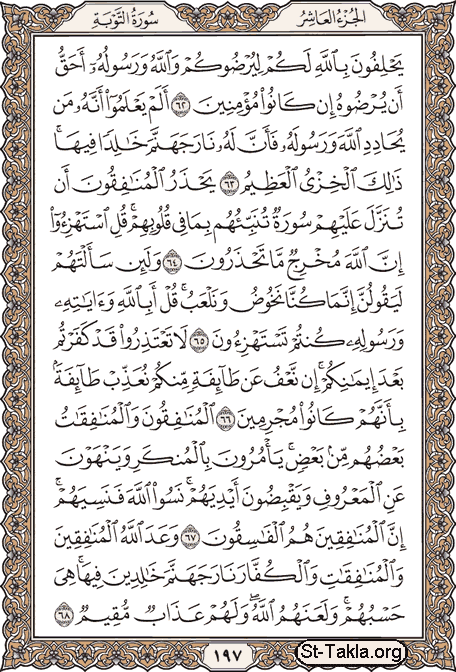 الجزء العاشر
سورة التوبة
يَحْلِفُونَ بِٱللَّهِ لَكُمْ لِيُرْضُوكُمْ وَٱللَّهُ وَرَسُولُهُۥٓ أَحَقُّ
أَن يُرْضُوهُ إِن كَانُوا۟ مُؤْمِنِينَ ٦٢ أَلَمْ يَعْلَمُوٓا۟ أَنَّهُۥ مَن
يُحَادِدِ ٱللَّهَ وَرَسُولَهُۥ فَأَنَّ لَهُۥ نَارَ جَهَنَّمَ خَٰلِدًا فِيهَا ۚ
ذَٰلِكَ ٱلْخِزْىُ ٱلْعَظِيمُ ٦٣ يَحْذَرُ ٱلْمُنَٰفِقُونَ أَن
تُنَزَّلَ عَلَيْهِمْ سُورَةٌ تُنَبِّئُهُم بِمَا فِى قُلُوبِهِمْ ۚ قُلِ ٱسْتَهْزِءُوٓا۟
إِنَّ ٱللَّهَ مُخْرِجٌ مَّا تَحْذَرُونَ ٦٤ وَلَئِن سَأَلْتَهُمْ
لَيَقُولُنَّ إِنَّمَا كُنَّا نَخُوضُ وَنَلْعَبُ ۚ قُلْ أَبِٱللَّهِ وَءَايَٰتِهِۦ
وَرَسُولِهِۦ كُنتُمْ تَسْتَهْزِءُونَ ٦٥ لَا تَعْتَذِرُوا۟ قَدْ كَفَرْتُم
بَعْدَ إِيمَٰنِكُمْ ۚ إِن نَّعْفُ عَن طَآئِفَةٍ مِّنكُمْ نُعَذِّبْ طَآئِفَةًۢ
بِأَنَّهُمْ كَانُوا۟ مُجْرِمِينَ ٦٦ ٱلْمُنَٰفِقُونَ وَٱلْمُنَٰفِقَٰتُ
بَعْضُهُم مِّنۢ بَعْضٍ ۚ يَأْمُرُونَ بِٱلْمُنكَرِ وَيَنْهَوْنَ
عَنِ ٱلْمَعْرُوفِ وَيَقْبِضُونَ أَيْدِيَهُمْ ۚ نَسُوا۟ ٱللَّهَ فَنَسِيَهُمْ ۗ
إِنَّ ٱلْمُنَٰفِقِينَ هُمُ ٱلْفَٰسِقُونَ ٦٧ وَعَدَ ٱللَّهُ ٱلْمُنَٰفِقِينَ
وَٱلْمُنَٰفِقَٰتِ وَٱلْكُفَّارَ نَارَ جَهَنَّمَ خَٰلِدِينَ فِيهَا ۚ هِىَ
حَسْبُهُمْ ۚ وَلَعَنَهُمُ ٱللَّهُ ۖ وَلَهُمْ عَذَابٌ مُّقِيمٌ ٦٨
١٩٧
St-Takla.org